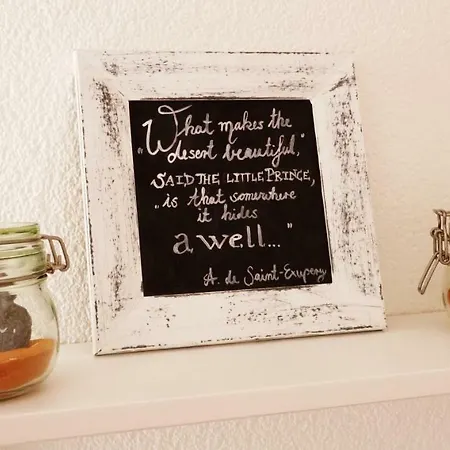 „What makes the
desert beautiful,"
SAID THE LITTLE PRINCE,
„is that somewhere
it hides
a well..."
A. de Saint-Exupery